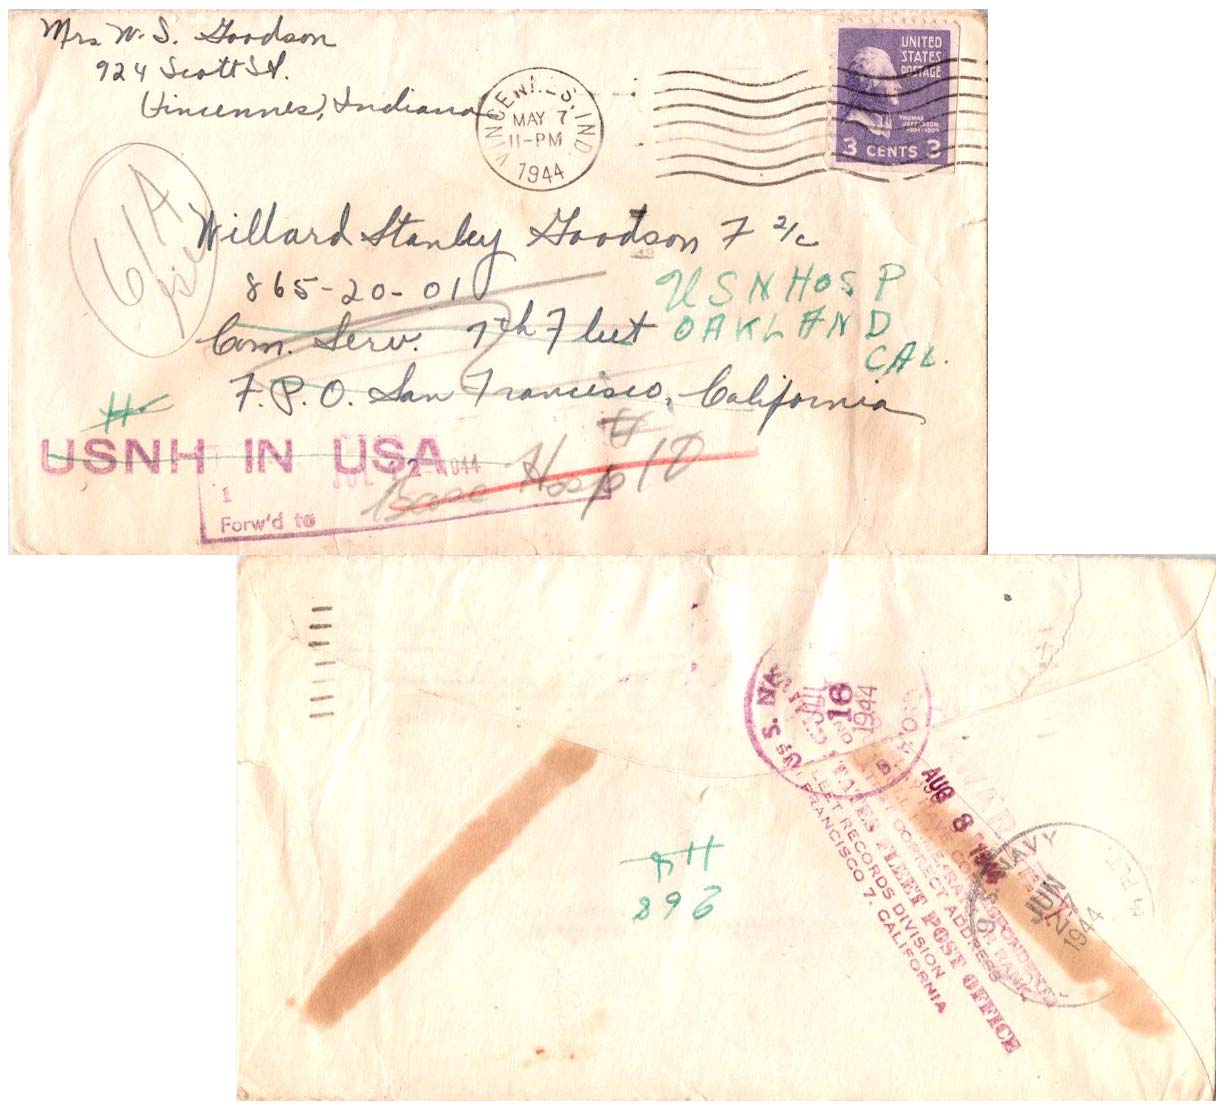 Mrs W. S. Goodson
924 Scott St.
Vincennes, Indiana
VINCENNES, IND.
MAY 7
11-PM
1944
UNITED
STATES
POSTAGE
THOMAS
JEFFERSON
3 CENTS 3
61A
file
Willard Stanley Goodson F 2/c
865-20-01
Com. Serv. 7th Fleet
F.P.O. San Francisco, California
USNHOSP
OAKLAND
CAL.
H
USNH IN USA
JUL 12 1944
1
Forw'd to
Base Hosp # 10
U. S. NAVY
16
1944
AUG 8 1944
CORRECT ADDRESS
UNITED STATES FLEET POST OFFICE
FLEET RECORDS DIVISION
SAN FRANCISCO 7, CALIFORNIA
NAVY
JUN
1944
896